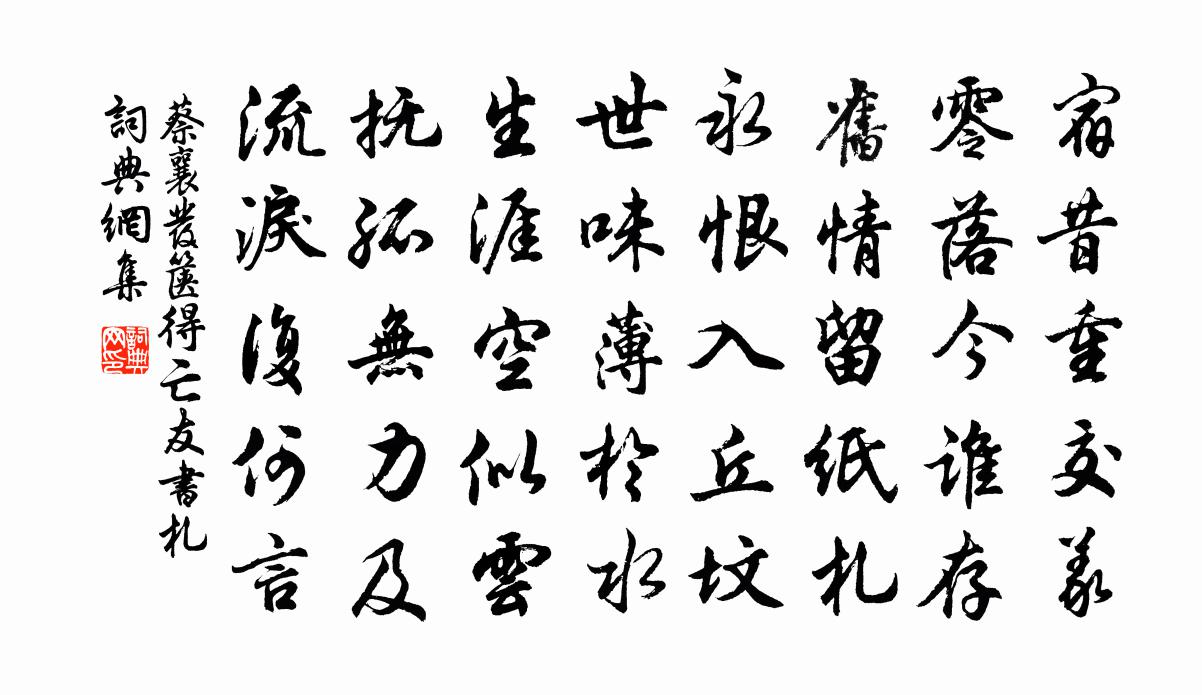 宿昔重交義
零落今誰存
舊情留紙札
永恨入丘墳
世味薄於水
生涯空似雲
抚孤無力及
流淚復何言
蔡襄發篋得亡友書札
詞典網集
詞典网印